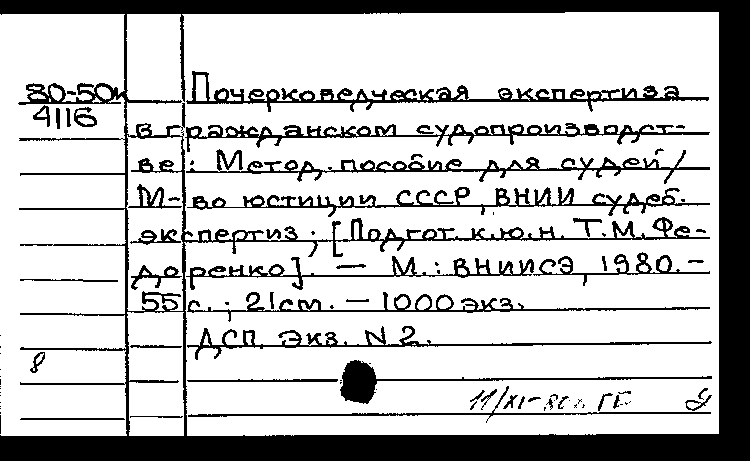 80-50к Почерковедческая экспертиза
4116
в гражданском судопроизводст-
ве : Метод. пособие для судей /
М-во юстиции СССР, ВНИИ судеб.
экспертиз ; [Подгот. к.ю.н. Т.М. Фе-
доренко]. — М. : ВНИИСЭ, 1980. –
55 с. ; 21 см. — 1000 экз.
ДСП. Экз. N 2.
8
11/XI-80г. ГБ